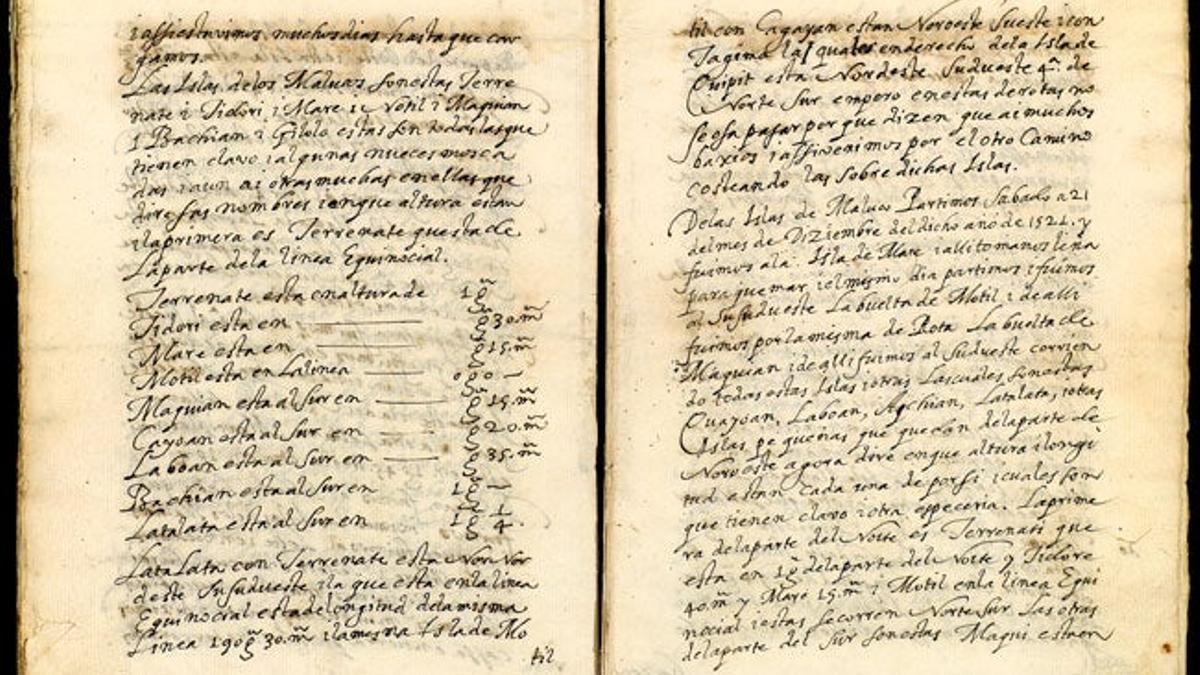 i assi estuvimos muchos dias hasta que car
gamos.
Las Islas delos Malucos son estas Terre
nate i Tidori i Mare i Motil i Maquian
i Bachian i Gilolo estas son todas las que
tienen clavo i algunas nueces mosca
das i aun ai otras muchas en ellas que
dire sus nombres i en que altura estan
i la primera es Terrenate que esta de
La parte de la linea Equinocial.
Terrenate esta en altura de 1 gº
Tidori esta en gº 30.m
Mare esta en gº 15.m
Motil esta en La linea 0 g 0
Maquian esta al Sur en gº 15.m
Cayoan esta al Sur en gº 20.m
Laboan esta al Sur en gº 35.m
Bachian esta al Sur en 1 gº
Latalata esta al Sur en 1 gº 1/4.
Lata Lata con Terrenate esta Nor Nor
deste Susudueste i la que esta en la linea
Equinocial esta de longitud de la misma
Linea 190 gº 30.m i la misma Isla de Mo
til
til con Cagayan estan Noroeste Sueste i con
Tagima la qual es en derecho de la Isla de
Quipit esta Nordeste Sudueste 4ª de
Norte Sur empero en estas derotas no
se osa pasar por que dizen que ai muchos
baxios i assi venimos por el otro Camino
costeando las sobre dichas Islas.
Delas Islas de Maluco Partimos Sabado a 21
del mes de Diziembre del dicho año de 1521. y
fuimos a la Isla de Mare i alli tomamos leña
para quemar i el mismo dia partimos i fuimos
al Susudueste La buelta de Motil i de alli
fuimos por la misma de Rota La buelta de
Maquian i de alli fuimos al Sudueste corrien
do todas estas Islas i otras Las cuales son estas
Cuayoan, Laboan, Agchian, Latalata, i otras
Islas pequeñas que quedan de la parte de
Noroeste agora dire en que altura i longi
tud estan cada una de por si i cuales son
que tienen clavo i otra especeria. La prime
ra de la parte del Norte es Terrenati que
esta en 1 gº de la parte del Norte y Tidore
40.m y Mare 15.m i Motil en la linea Equi
nocial i estas se corren Norte Sur Las otras
de la parte del Sur son estas Maqui esta en